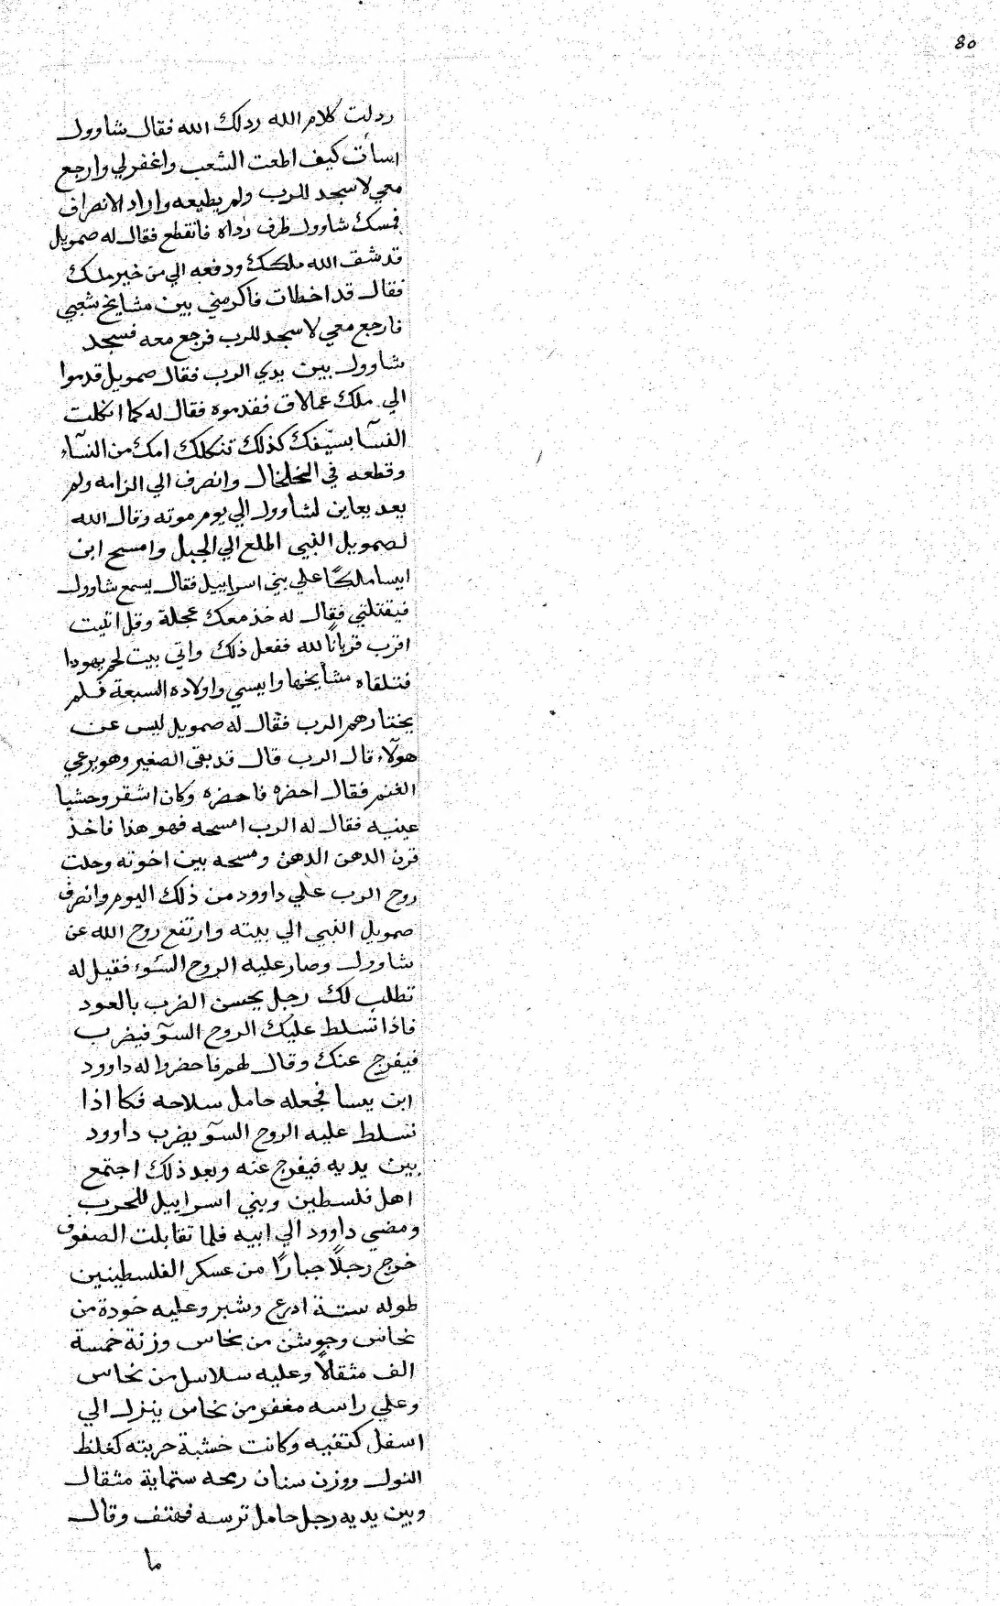 80
ردلت كلام الله ردلك الله فقال شاوول
اسأت كيف اطعت الشعب واغفرلي وارجع
معي لاسجد للرب ولم يطيعه واراد الانصراف
فمسك شاوول طرف رداه فانقطع فقال له صمويل
قد شق الله ملكك ودفعه الي من خير ملك
فقال قد اخطات فاكرمني بين مشايخ شعبي
فارجع معي لاسجد للرب فرجع معه فسجد
شاوول بين يدي الرب فقال صمويل قدموا
الي ملك عمالاق فقدموه فقال له كما اثكلت
النسآ بسيفك كذلك تثكلك امك من النسآء
وقطعه في الجلجال وانصرف الي الرامه ولم
يعد يعاين لشاوول الي يوم موته وقال الله
لصمويل النبي اطلع الي الجبل وامسح ابن
ايسا ملكًا علي بني اسراييل فقال يسمع شاوول
فيقتلني فقال له خذ معك عجلة وقل اتيت
اقرب قربانًا لله ففعل ذلك واتي بيت لحم يهودا
فتلقاه مشايخها وايسي واولاده السبعة فلم
يختارهم الرب فقال له صمويل ليس عن
هولآء قال الرب قال قد بقي الصغير وهو يرعي
الغنم فقال احضره فاحضره وكان اشقر وحشيا
عينيه فقال له الرب امسحه فهو هذا فاخذ
قرن الدهن الدهن ومسحه بين اخوته وحلت
روح الرب علي داوود من ذلك اليوم وانصرف
صمويل النبي الي بيته وارتفع روح الله عن
شاوول وصار عليه الروح السوء فقيل له
تطلب لك رجل يحسن الضرب بالعود
فاذا تسلط عليك الروح السوّ فيضرب
فيفرج عنك وقال لهم فاحضروا له داوود
ابن يسا فجعله حامل سلاحه فكا اذا
تسلط عليه الروح السوّ يضرب داوود
بين يديه فيفرج عنه وبعد ذلك اجتمع
اهل فلسطين وبني اسراييل للحرب
ومضي داوود الي ابيه فلما تقابلت الصفوف
خرج رجلًا جبارًا من عسكر الفلسطينين
طوله ستة ادرع وشبر وعليه خودة من
نحاس وجوشن من نحاس وزنة خمسة
الف مثقالًا وعليه سلاسل من نحاس
وعلي راسه مغفر من نحاس ينزل الي
اسفل كتفيه وكانت خشبة حربته كغلظ
النول ووزن سنان رمحه ستماية مثقال
وبين يديه رجل حامل ترسه فهتف وقال
ما